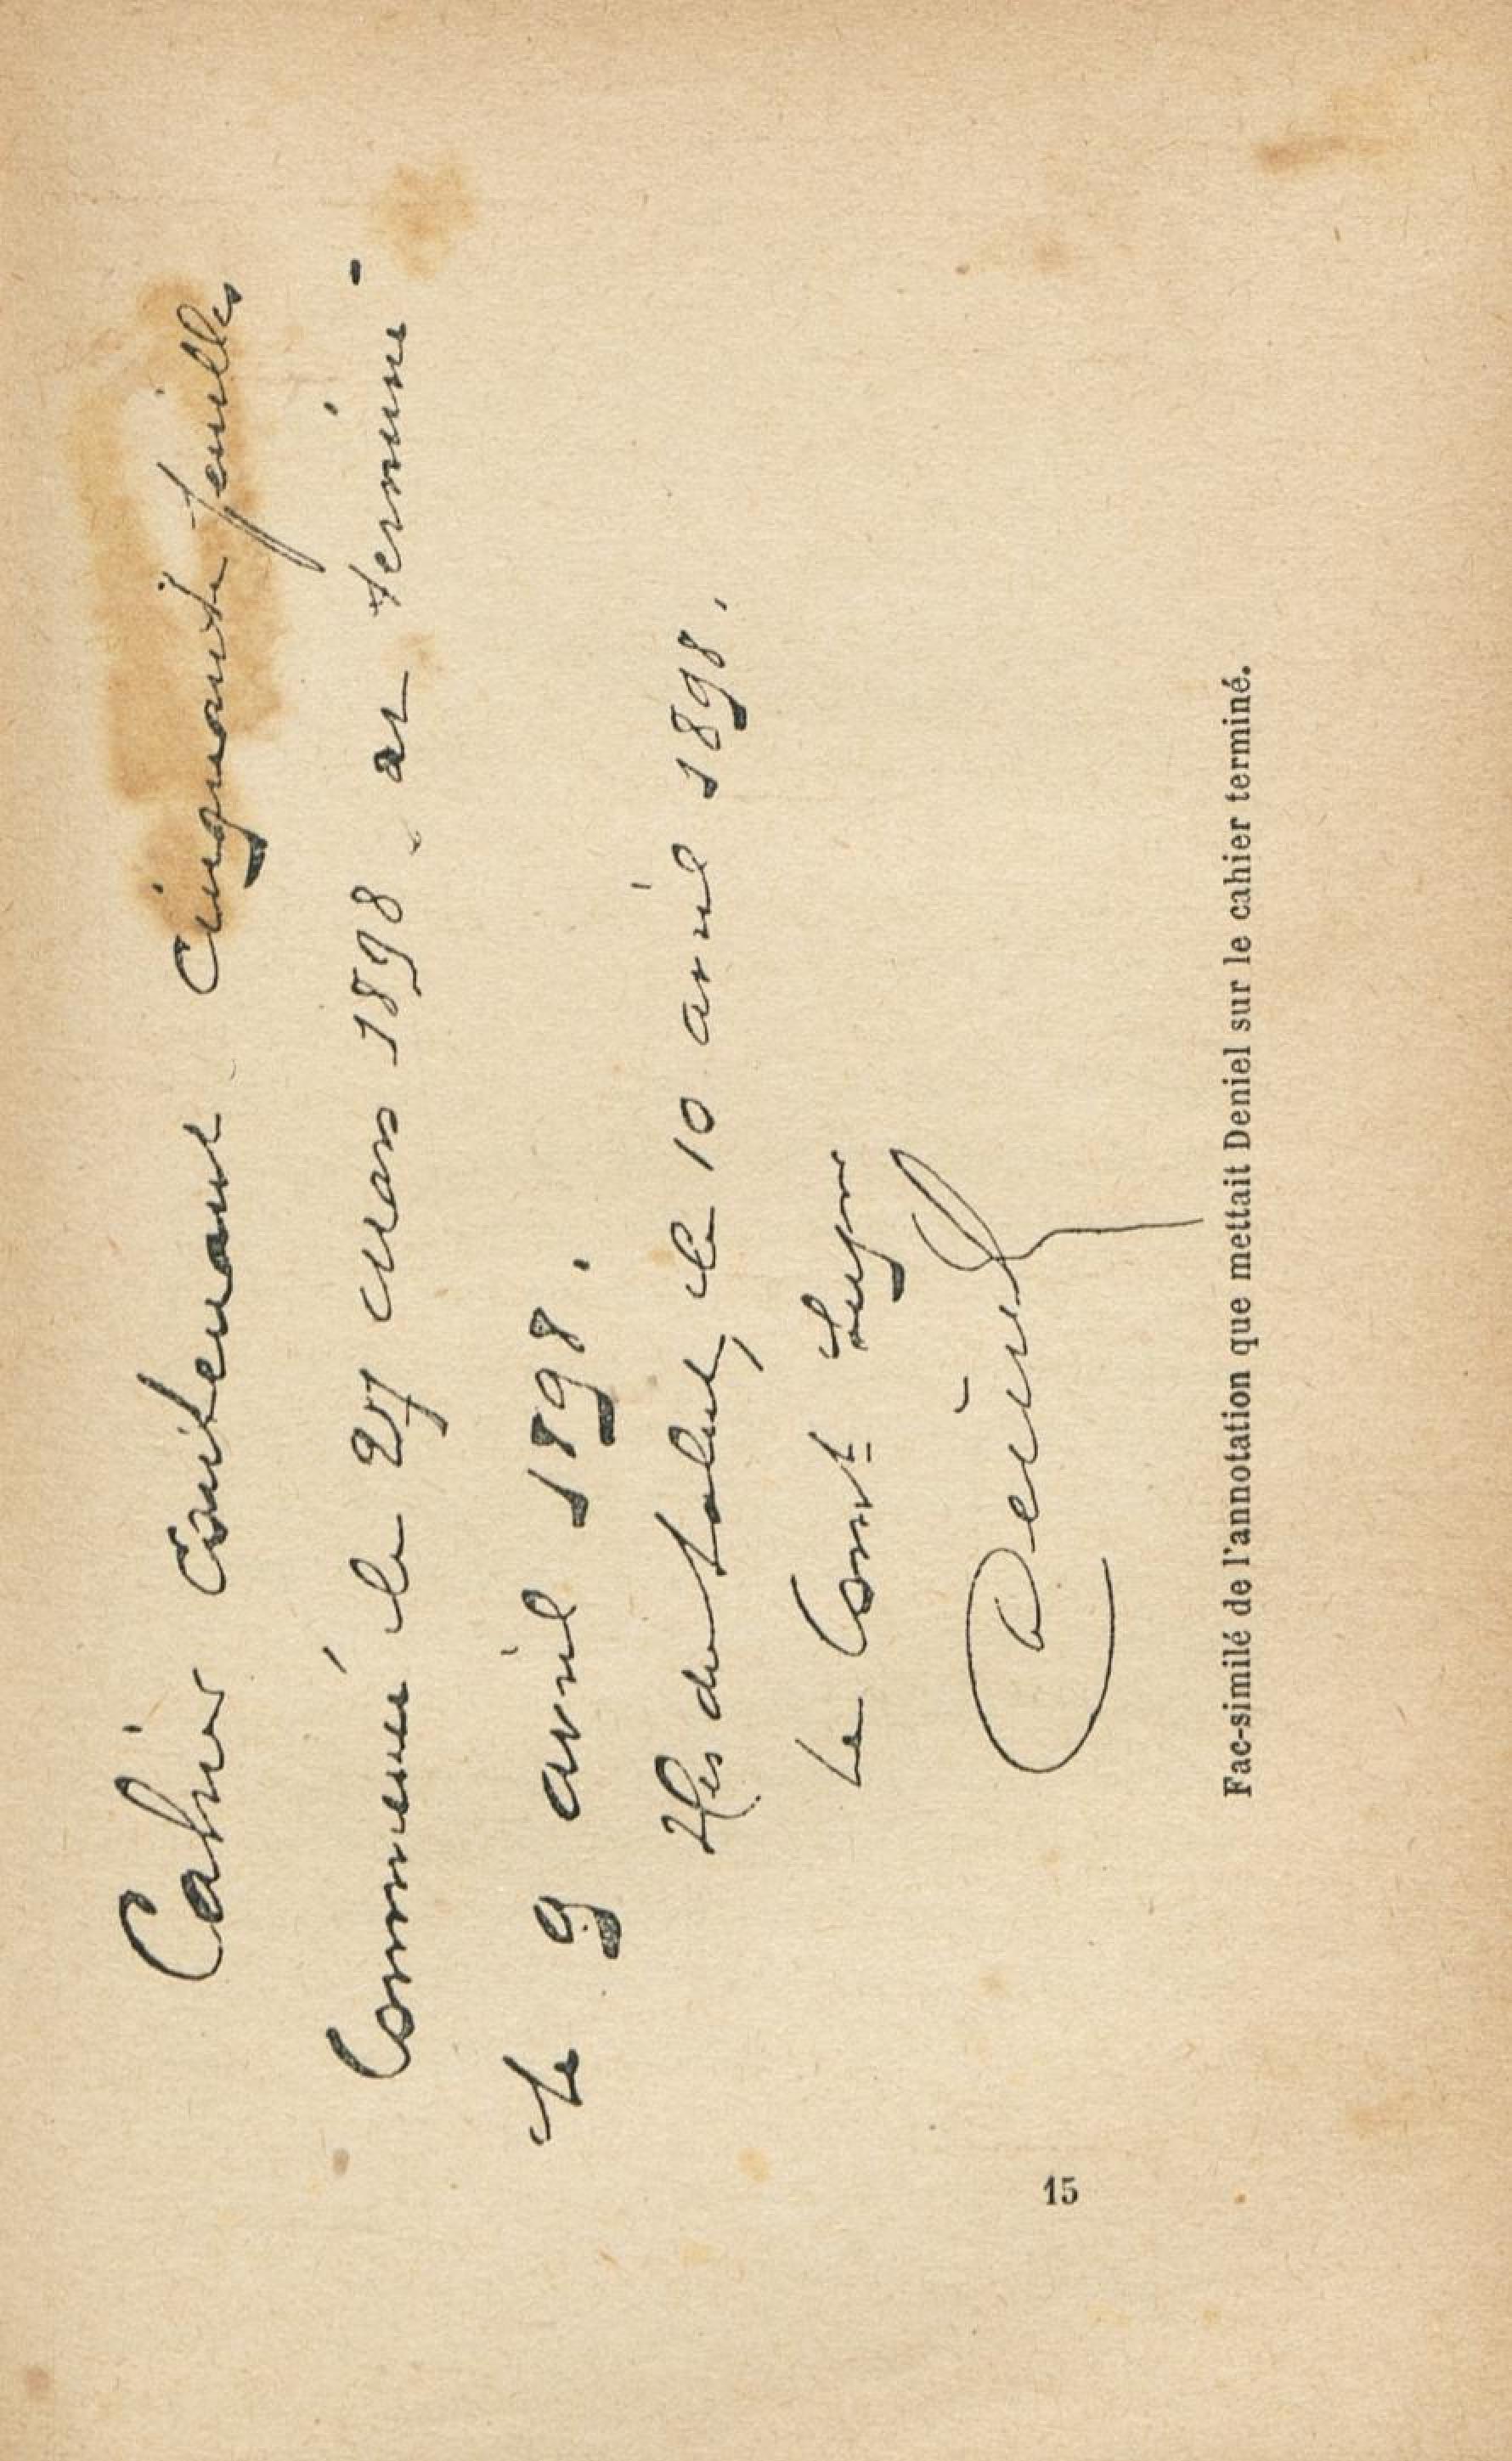 Cahier contenant cinquante feuilles
Commencé le 27 mars 1898 et terminé
le 9 avril 1898.
Iles du Salut, le 10 avril 1898.
Le Comt Supr
Deniel
Fac-similé de l'annotation que mettait Deniel sur le cahier terminé.
15